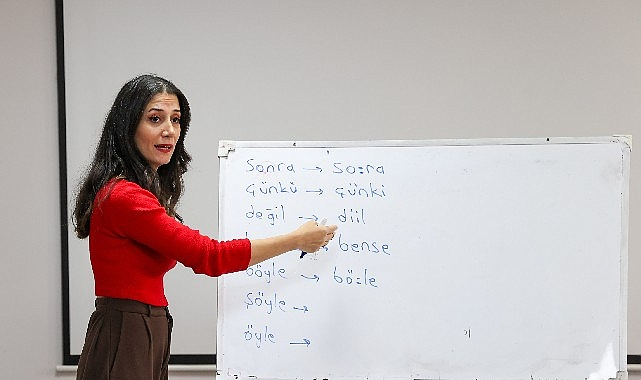 Sonra → So:ra
çünkü → çünki
değil → diil
→ bense
böyle → bö:le
Şöyle →
öyle →